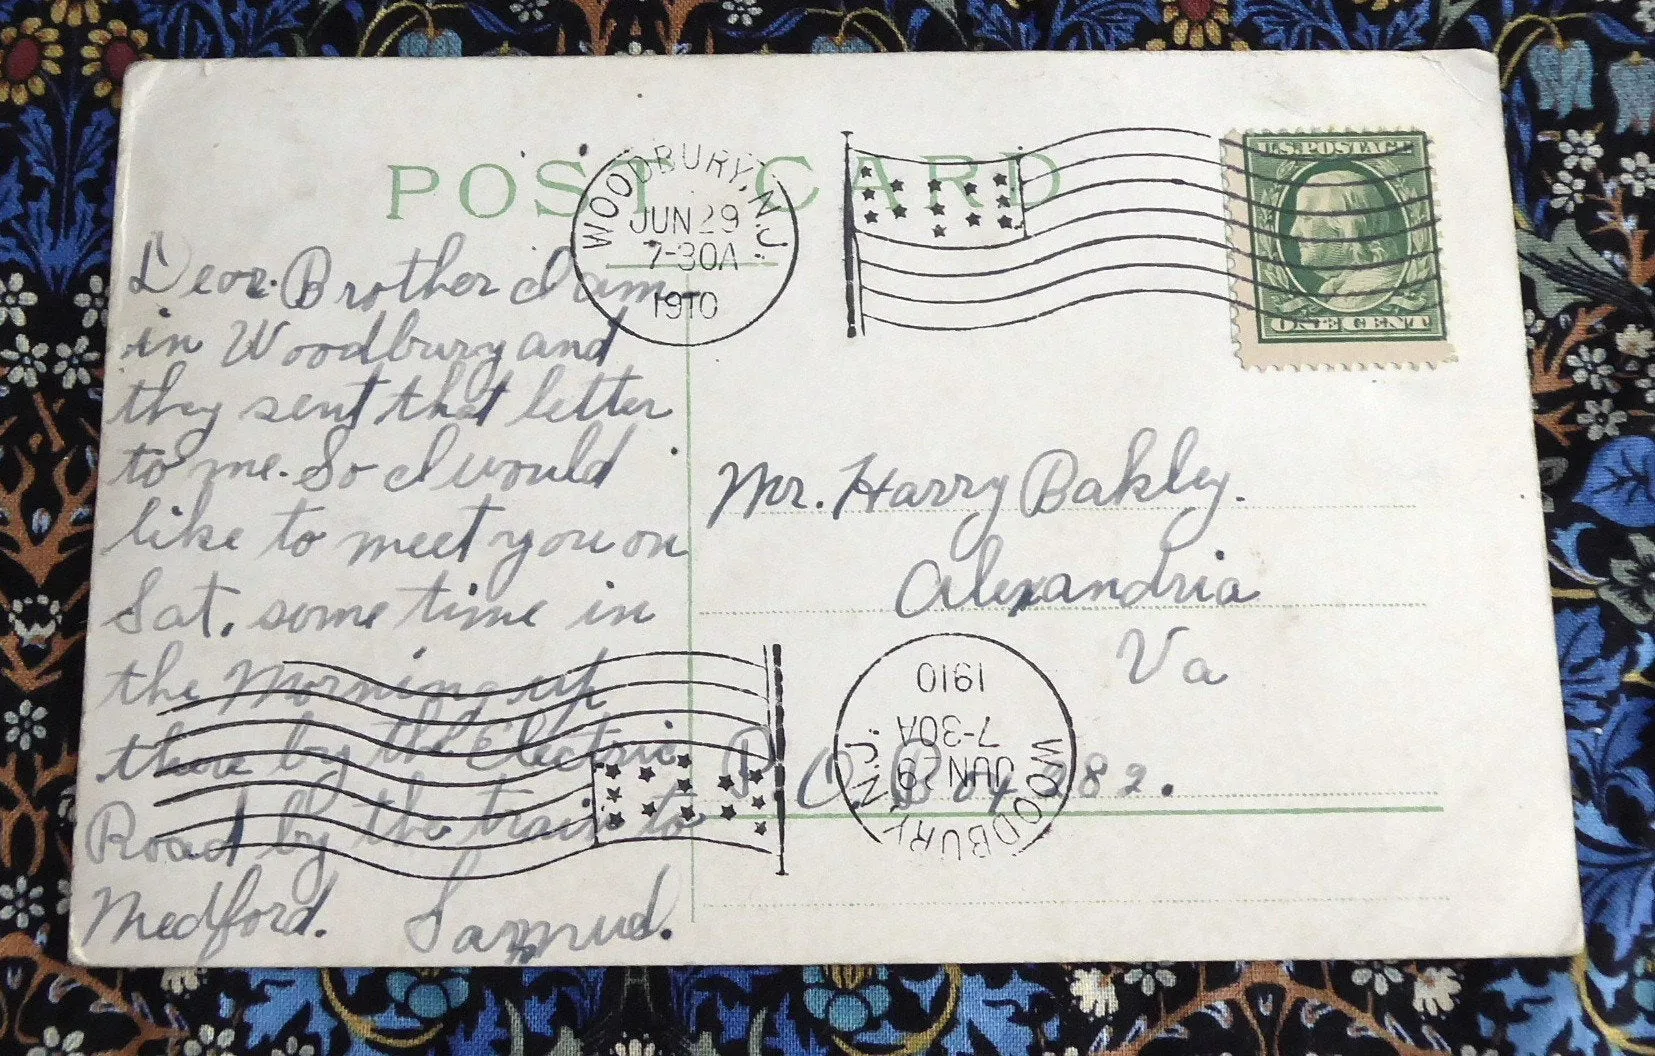 POST CARD
WOODBURY, N.J.
JUN 29
7-30A
1910
U.S. POSTAGE
ONE CENT
Dear Brother I am
in Woodbury and
they sent that letter
to me. So I would
like to meet you on
Sat. some time in
the Morning up
there by the Electric
Road by the train to
Medford. Samuel.
Mr. Harry Bakley.
Alexandria
Va
P. O. Box 282.
WOODBURY, N.J.
JUN 29
7-30A
1910